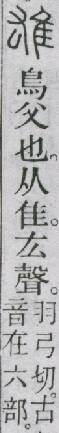 雄鳥父也。从隹。厷聲。
羽弓切。古
音在六部。